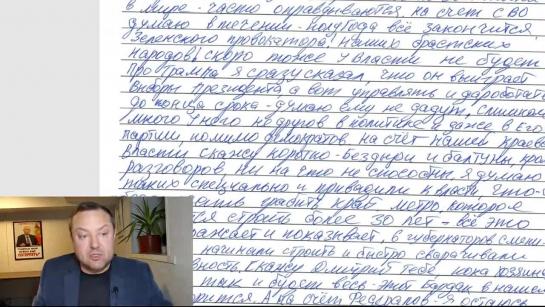 в мире - часто оправдываются на счет СВО
думаю в течении - полугода всё закончится
Зеленского провокатора, наших братских
народов, скоро тоже у власти не будет
Про Трампа я сразу сказал, что он выиграет
выборы президента а вот управлять и доработать
до конца срока - думаю ему не дадут, слишком
много у него недругов в политике и даже в его
партии, помимо демократов. на счёт нашей краевой
власти скажу коротко - бездари и балтуны, кроме
разговоров, ни на что не способны, я думаю
таких специально и привадили к власти, что-
грабить край метро, которое
строить более 30 лет - всё это
и показывает, 6 губернаторов смени-
начинали строить и быстро сварачивали
скажу Дмитрий тебе, пока хозяина
так и будет весь этот бардак в нашем
А на счёт осталось